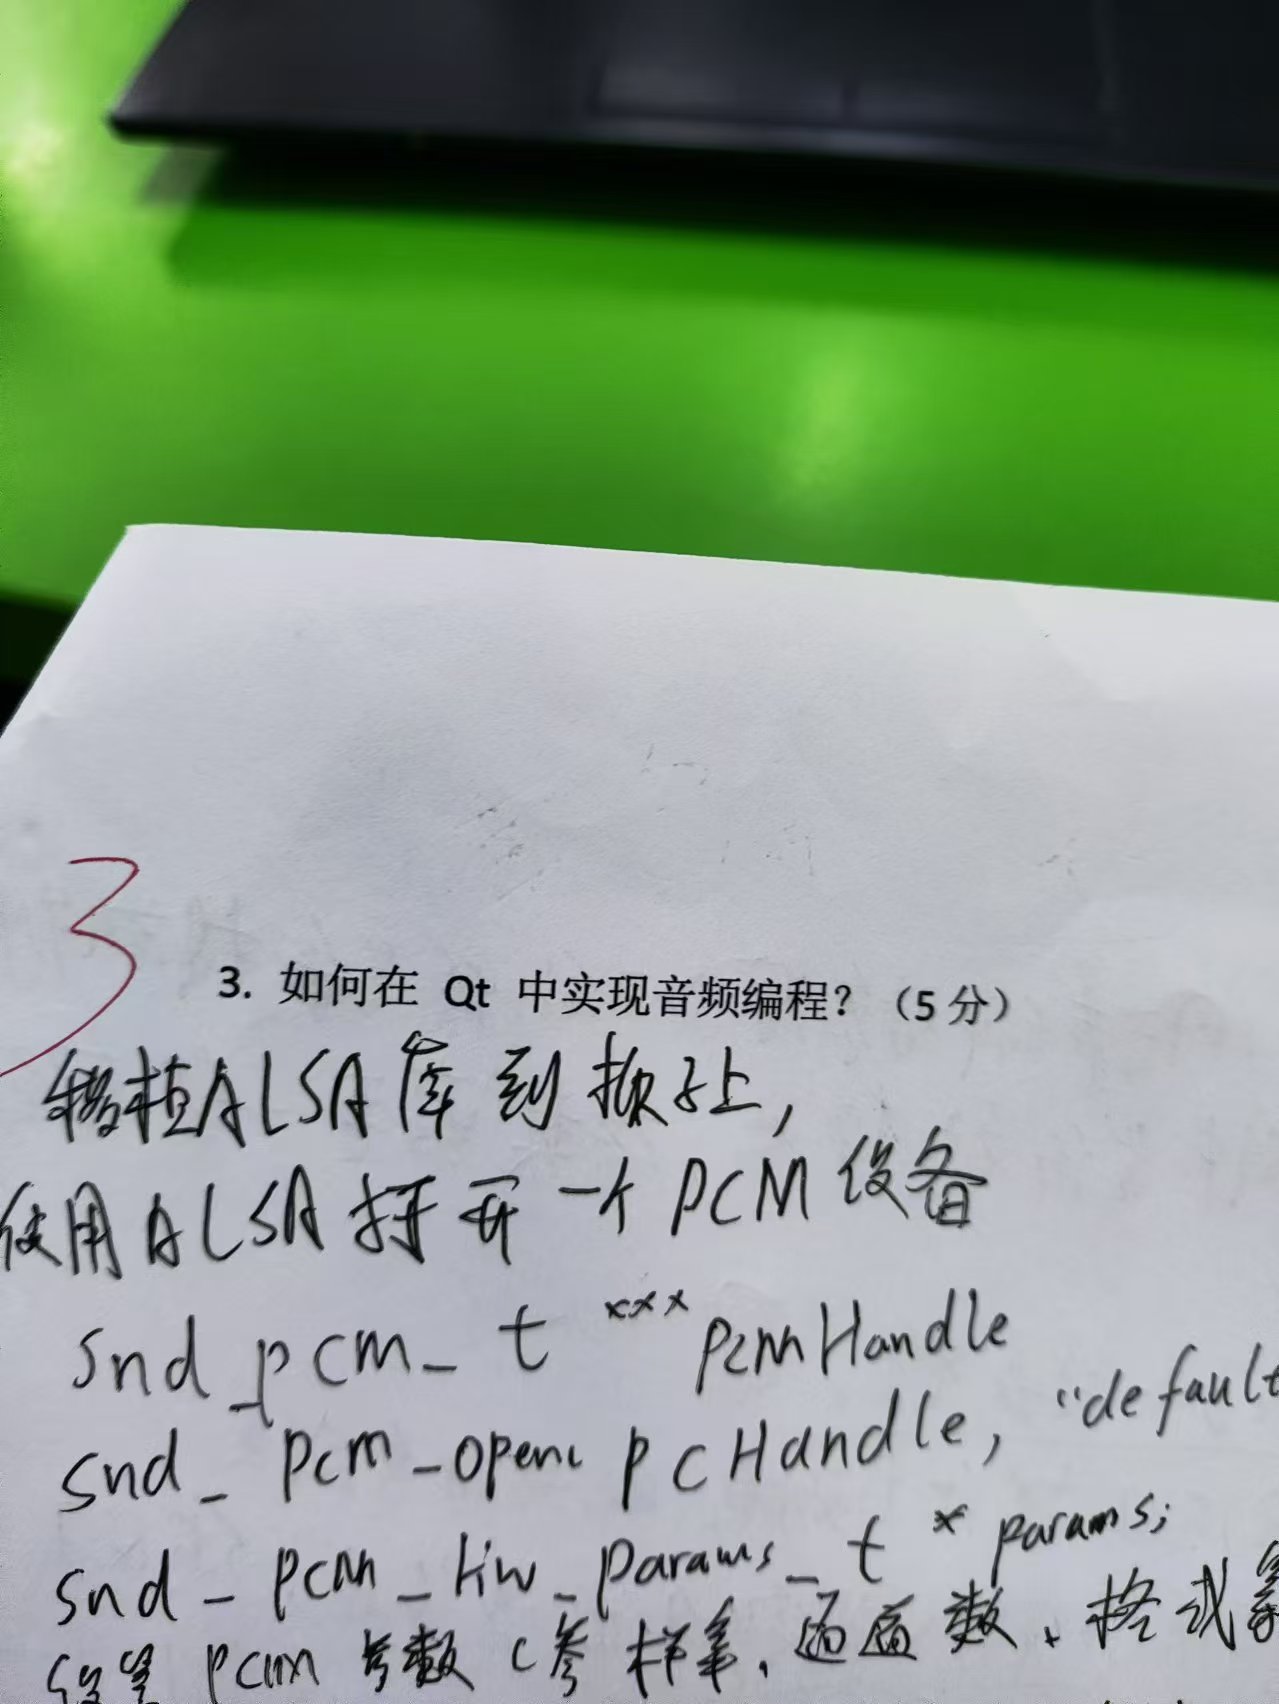 3
3. 如何在 Qt 中实现音频编程？（5 分）
移植ALSA库到板子上,
使用ALSA打开一个PCM设备
snd_pcm_t *** pcmHandle
snd_pcm_open( pcHandle, "default
snd_pcm_hw_params_t * params;
设置pcm参数(采样率、通道数、格式